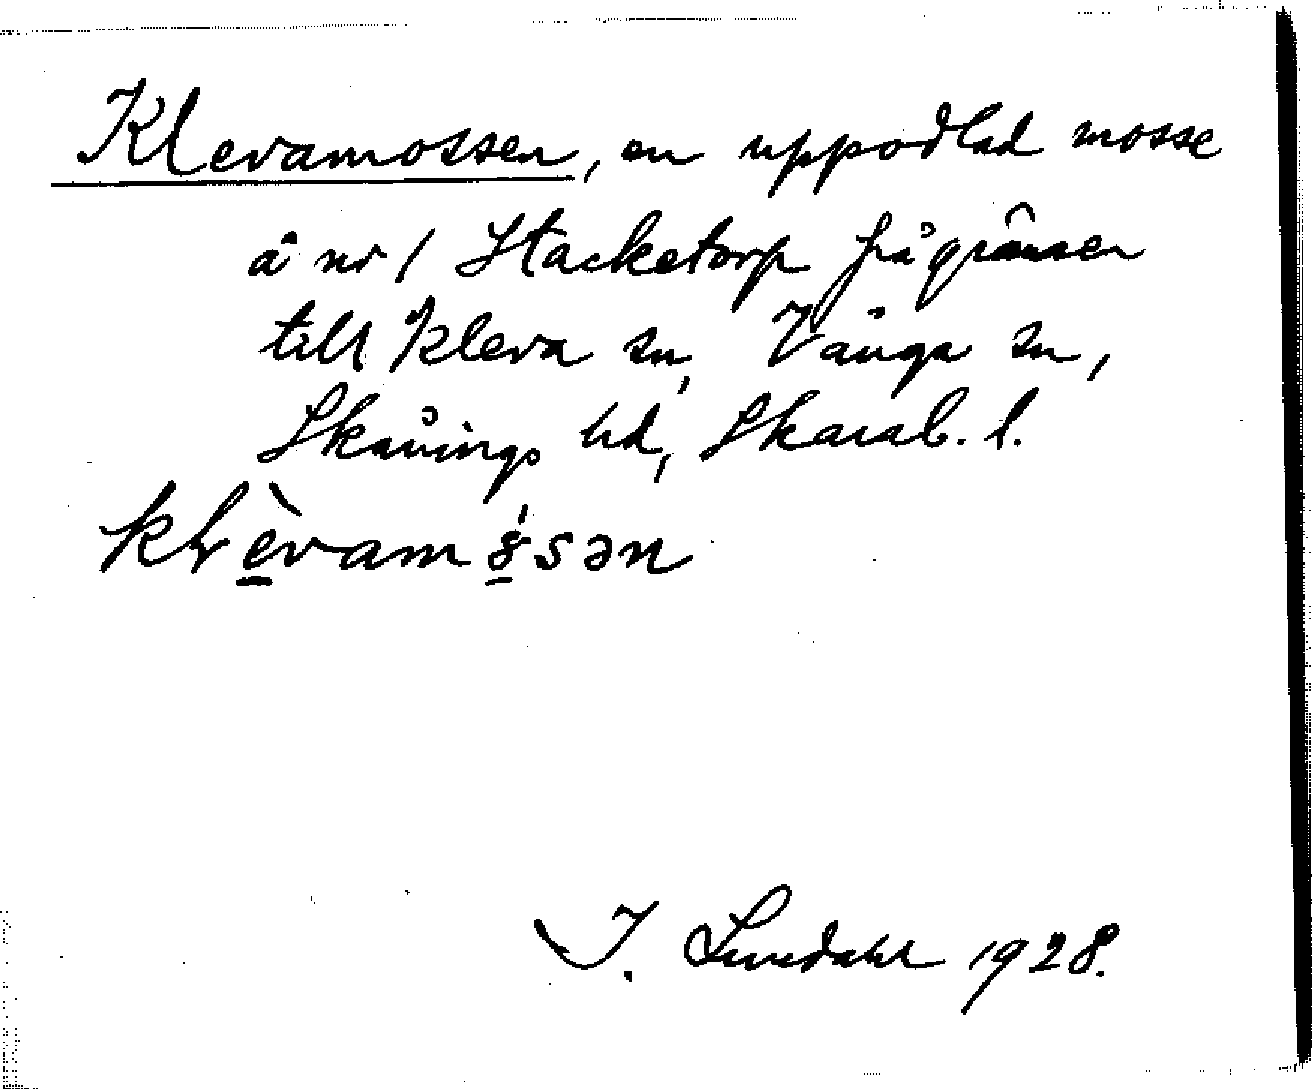 Klevamossen, en uppodlad mosse
å nr 1 Stacketorp på gränsen
till Kleva sn, Vånga sn,
Skånings hd, Skarab. l.
I. Lundahl 1928.